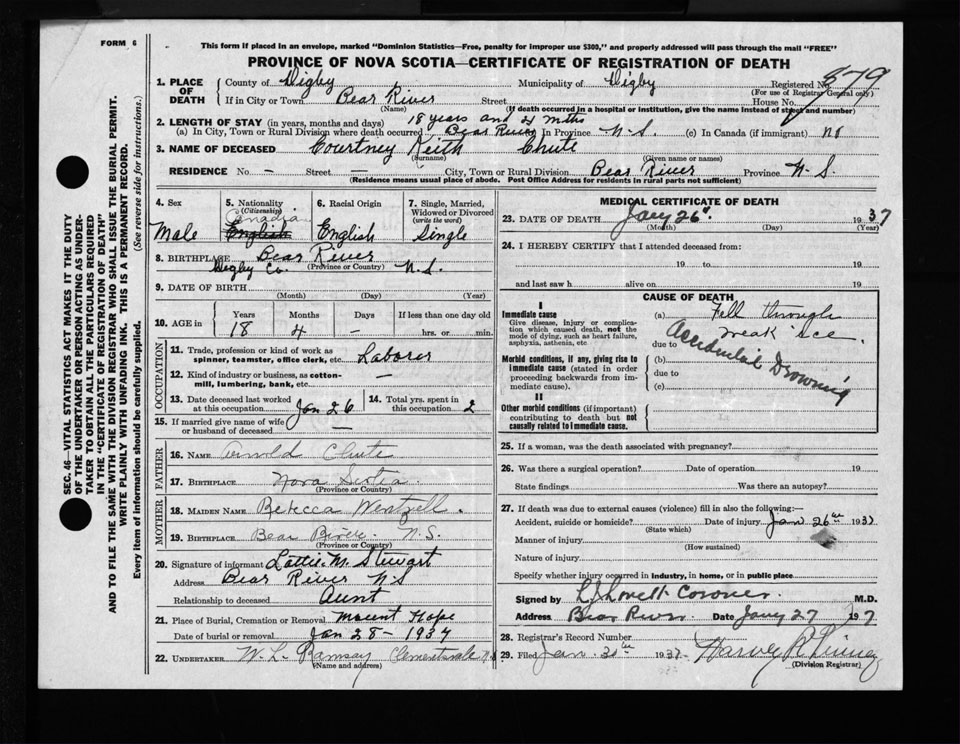 FORM 6
This form if placed in an envelope, marked "Dominion Statistics—Free, penalty for improper use $300," and properly addressed will pass through the mail "FREE"
PROVINCE OF NOVA SCOTIA—CERTIFICATE OF REGISTRATION OF DEATH
1. PLACE OF DEATH
County of Digby Municipality of Digby Registered No. 879
(For use of Registrar General only)
If in City or Town Bear River Street House No.
(Name) (If death occurred in a hospital or institution, give the name instead of street and number)
2. LENGTH OF STAY (in years, months and days) 18 years and 4 mths
(a) In City, Town or Rural Division where death occurred Bear River In Province N-S. (c) In Canada (if immigrant) no
3. NAME OF DECEASED Courtney Keith Chute
(Surname) (Given name or names)
RESIDENCE No. – Street – City, Town or Rural Division Bear River Province N-S.
(Residence means usual place of abode. Post Office Address for residents in rural parts not sufficient)
4. Sex
Male
5. Nationality
(Citizenship)
Canadian
English
6. Racial Origin
English
7. Single, Married, Widowed or Divorced
(write the word)
Single
8. BIRTHPLACE Bear River
Digby Co. (Province or Country) N.S.
9. DATE OF BIRTH
(Month) (Day) (Year)
10. AGE in
Years Months Days If less than one day old
18 4 – hrs. or min.
OCCUPATION
11. Trade, profession or kind of work as spinner, teamster, office clerk, etc. Laborer
12. Kind of industry or business, as cotton-mill, lumbering, bank, etc. –
13. Date deceased last worked at this occupation Jan 26
14. Total yrs. spent in this occupation 2
15. If married give name of wife or husband of deceased –
FATHER
16. NAME Arnold Chute
17. BIRTHPLACE Nova Scotia
(Province or Country)
MOTHER
18. MAIDEN NAME Rebecca Wentzell.
19. BIRTHPLACE Bear River. N.S.
(Province or Country)
20. Signature of informant Lottie M. Stewart
Address Bear River N-S
Relationship to deceased Aunt
21. Place of Burial, Cremation or Removal Mount Hope
Date of burial or removal Jan 28 – 1937
22. UNDERTAKER W. L. Ramsay Clementsvale N.S.
(Name and address)
MEDICAL CERTIFICATE OF DEATH
23. DATE OF DEATH Jany 26" 1937
(Month) (Day) (Year)
24. I HEREBY CERTIFY that I attended deceased from:
19 to 19
and last saw h alive on 19
CAUSE OF DEATH
I
Immediate cause
Give disease, injury or complication which caused death, not the mode of dying, such as heart failure, asphyxia, asthenia, etc
(a) Fell through
weak ice.
due to
Accidental Drowning
Morbid conditions, if any, giving rise to immediate cause (stated in order proceeding backwards from immediate cause).
(b)
due to
(c)
II
Other morbid conditions (if important) contributing to death but not causally related to immediate cause.
25. If a woman, was the death associated with pregnancy?
26. Was there a surgical operation? Date of operation 19
State findings Was there an autopsy?
27. If death was due to external causes (violence) fill in also the following:—
Accident, suicide or homicide? Date of injury Jan 26th 1937
(State which)
Manner of injury
(How sustained)
Nature of injury
Specify whether injury occurred in industry, in home, or in public place
Signed by L J Lovett Coroner M.D.
Address Bear River Date Jany 27 1937
28. Registrar's Record Number
29. Filed Jan. 30th 1937 Harvey
(Division Registrar)
SEC. 46—VITAL STATISTICS ACT MAKES IT THE DUTY
OF THE UNDERTAKER OR PERSON ACTING AS UNDER-
TAKER TO OBTAIN ALL THE PARTICULARS REQUIRED
IN THE "CERTIFICATE OF REGISTRATION OF DEATH"
AND TO FILE THE SAME WITH THE DIVISION REGISTRAR WHO SHALL ISSUE THE BURIAL PERMIT.
WRITE PLAINLY WITH UNFADING INK. THIS IS A PERMANENT RECORD.
Every item of information should be carefully supplied. (See reverse side for instructions.)